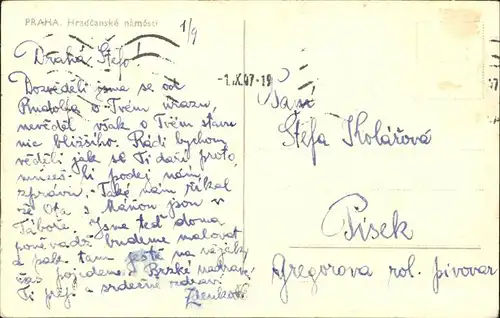 PRAHA. Hradčanské náměstí
1/9
-1.IX.47-19
Drahá Štefo!
Dozvěděli jsme se od
Rudolfa o Tvém úrazu,
nevěděl však o Tvém stavu
nic bližšího. Rádi bychom
věděli jak se Ti daří proto,
můžeš-li podej nám
zprávu. Také nám říkal
že Ota s Máňou jsou v
Táboře. Jsme teď doma
poněvadž budeme malovat
a pak tam ještě na nějaký
čas pojedeme. Brzké uzdravení
Ti přejí a srdečně zdraví
Zdenkovi
Paní
Štefa Kolářová
Písek
Gregorova rol. pivovar